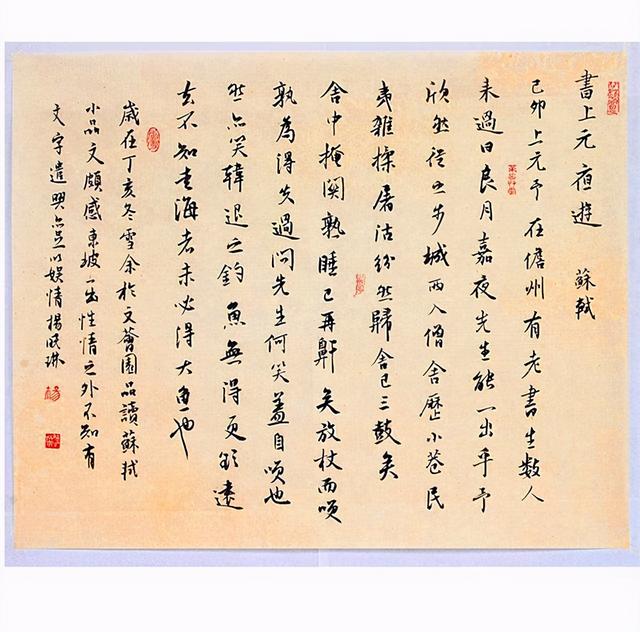 書上元夜遊 蘇軾
己卯上元予在儋州有老書生數人
来過曰良月嘉夜先生能一出乎予
欣然從之步城西入僧舍歷小巷民
夷雜揉屠沽紛然歸舍已三鼓矣
舍中掩關熟睡已再鼾矣放杖而咲
孰為得失過問先生何笑蓋自咲也
然亦笑韓退之釣魚無得更欲遠
去不知走海者未必得大魚也
歲在丁亥冬雪余於文薈園品讀蘇軾
小品文頗感東坡一出性情之外不知有
文字遣興亦足以娛情楊晓琳